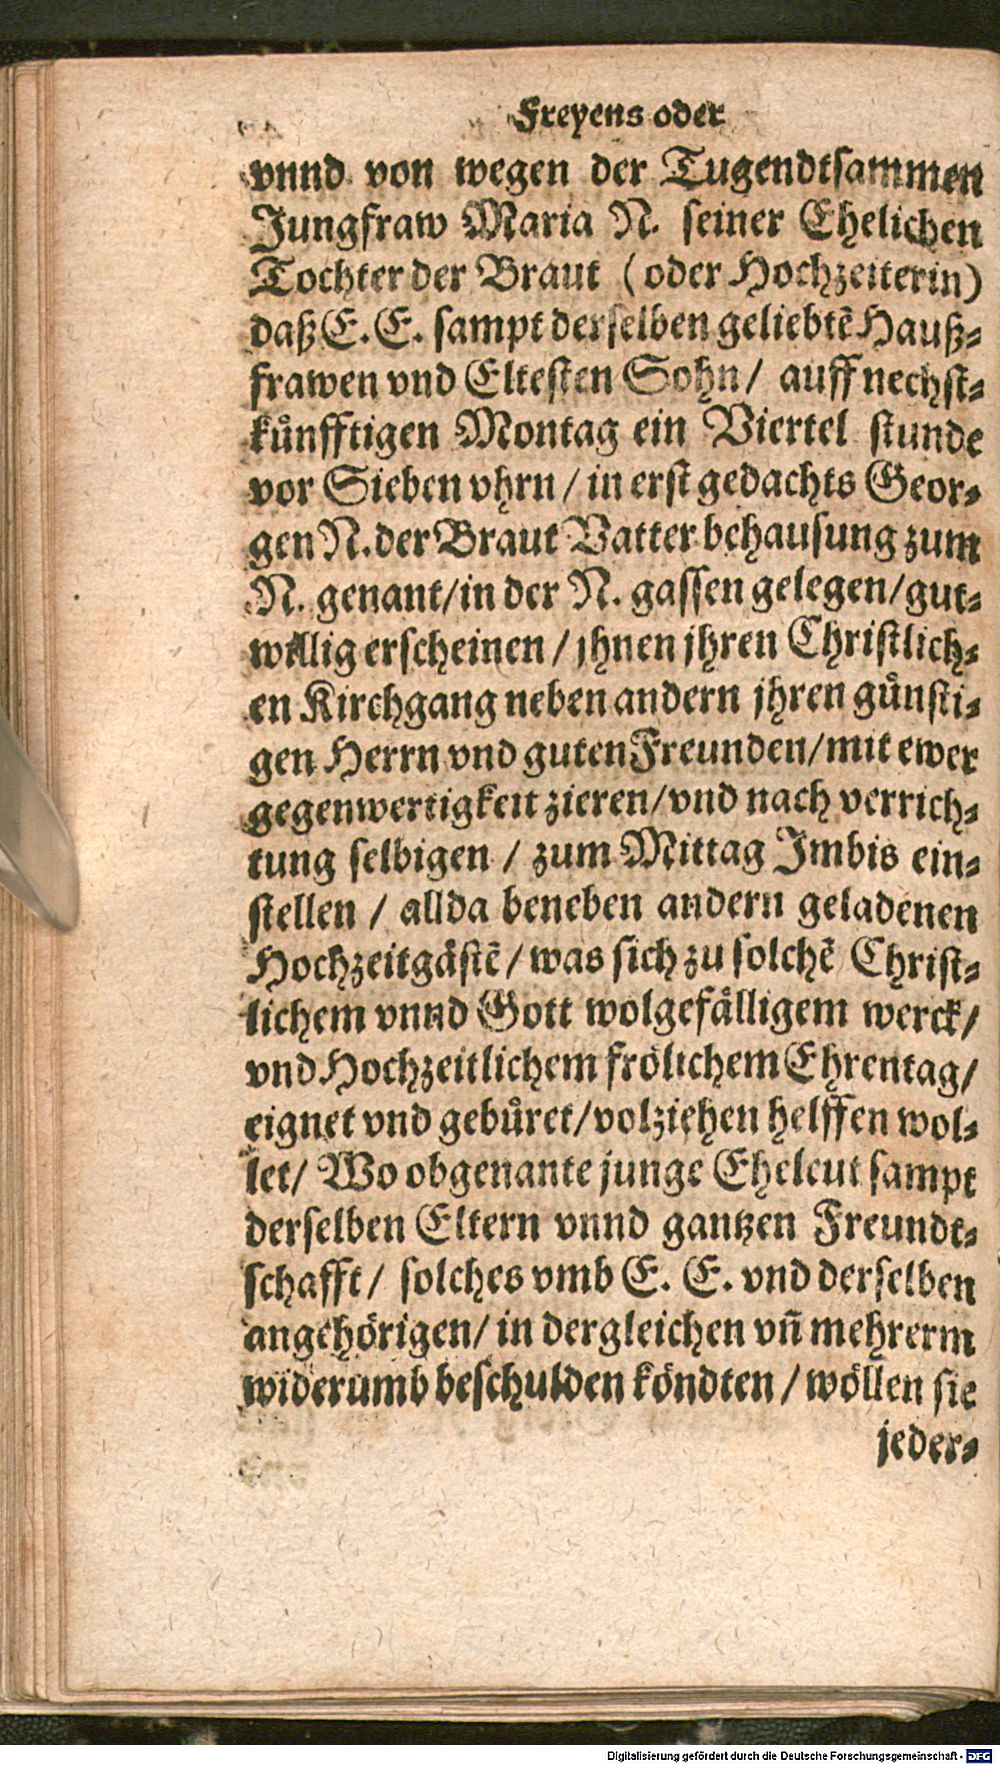 Freyens oder
vnnd von wegen der Tugendtsammen
Jungfraw Maria N. seiner Ehelichen
Tochter der Braut (oder Hochzeiterin)
daß E. E. sampt derselben geliebtẽ Hauß-
frawen vnd Eltesten Sohn / auff nechst-
kuͤnfftigen Montag ein Viertel stunde
vor Sieben vhrn / in erst gedachts Geor-
gen N. der Braut Vatter behausung zum
N. genant/in der N. gassen gelegen/gut-
willig erscheinen / jhnen jhren Christlich-
en Kirchgang neben andern jhren guͤnsti-
gen Herrn vnd guten Freunden/mit ewer
gegenwertigkeit zieren/vnd nach verrich-
tung selbigen / zum Mittag Imbis ein-
stellen / allda beneben andern geladenen
Hochzeitgaͤstẽ/was sich zu solchẽ Christ-
lichem vnnd Gott wolgefaͤlligem werck/
vnd Hochzeitlichem froͤlichem Ehrentag/
eignet vnd gebuͤret/volziehen helffen wol-
let/ Wo obgenante junge Eheleut sampt
derselben Eltern vnnd gantzen Freundt-
schafft/ solches vmb E. E. vnd derselben
angehoͤrigen/ in dergleichen vñ mehrerm
widerumb beschulden koͤndten / woͤllen sie
jeder-
Digitalisierung gefördert durch die Deutsche Forschungsgemeinschaft - DFG